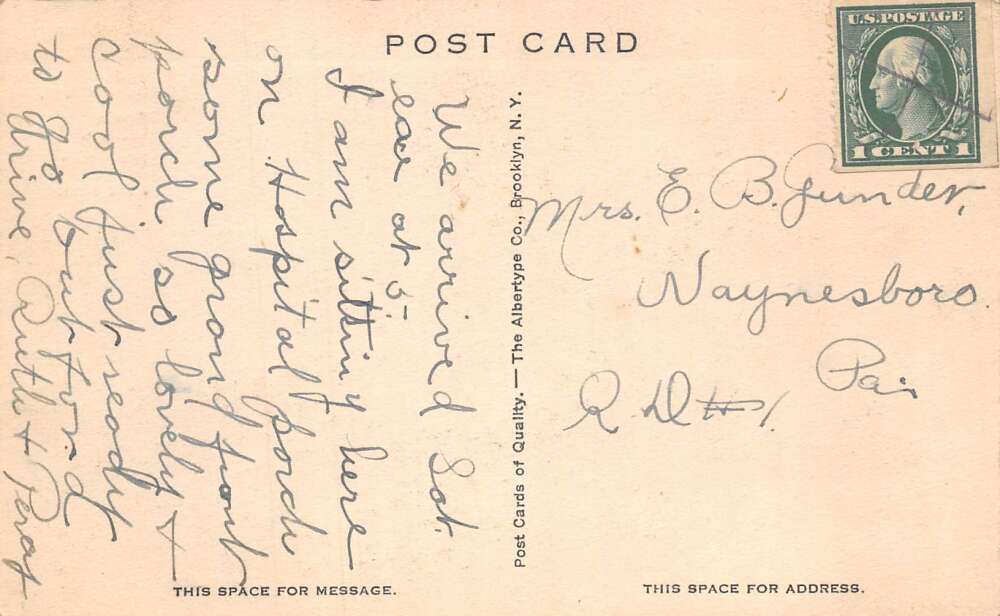 POST CARD
U.S. POSTAGE
1 CENT 1
We arrived Sat.
eve at 5
I am sitting here
on Hospital porch
some grand front
porch so lovely &
cool just ready
to go out for a
drive, Ruth &
Post Cards of Quality. — The Albertype Co., Brooklyn, N. Y.
Mrs. E. B. Gunder,
Waynesboro
Pa.
R D #1
THIS SPACE FOR MESSAGE.
THIS SPACE FOR ADDRESS.